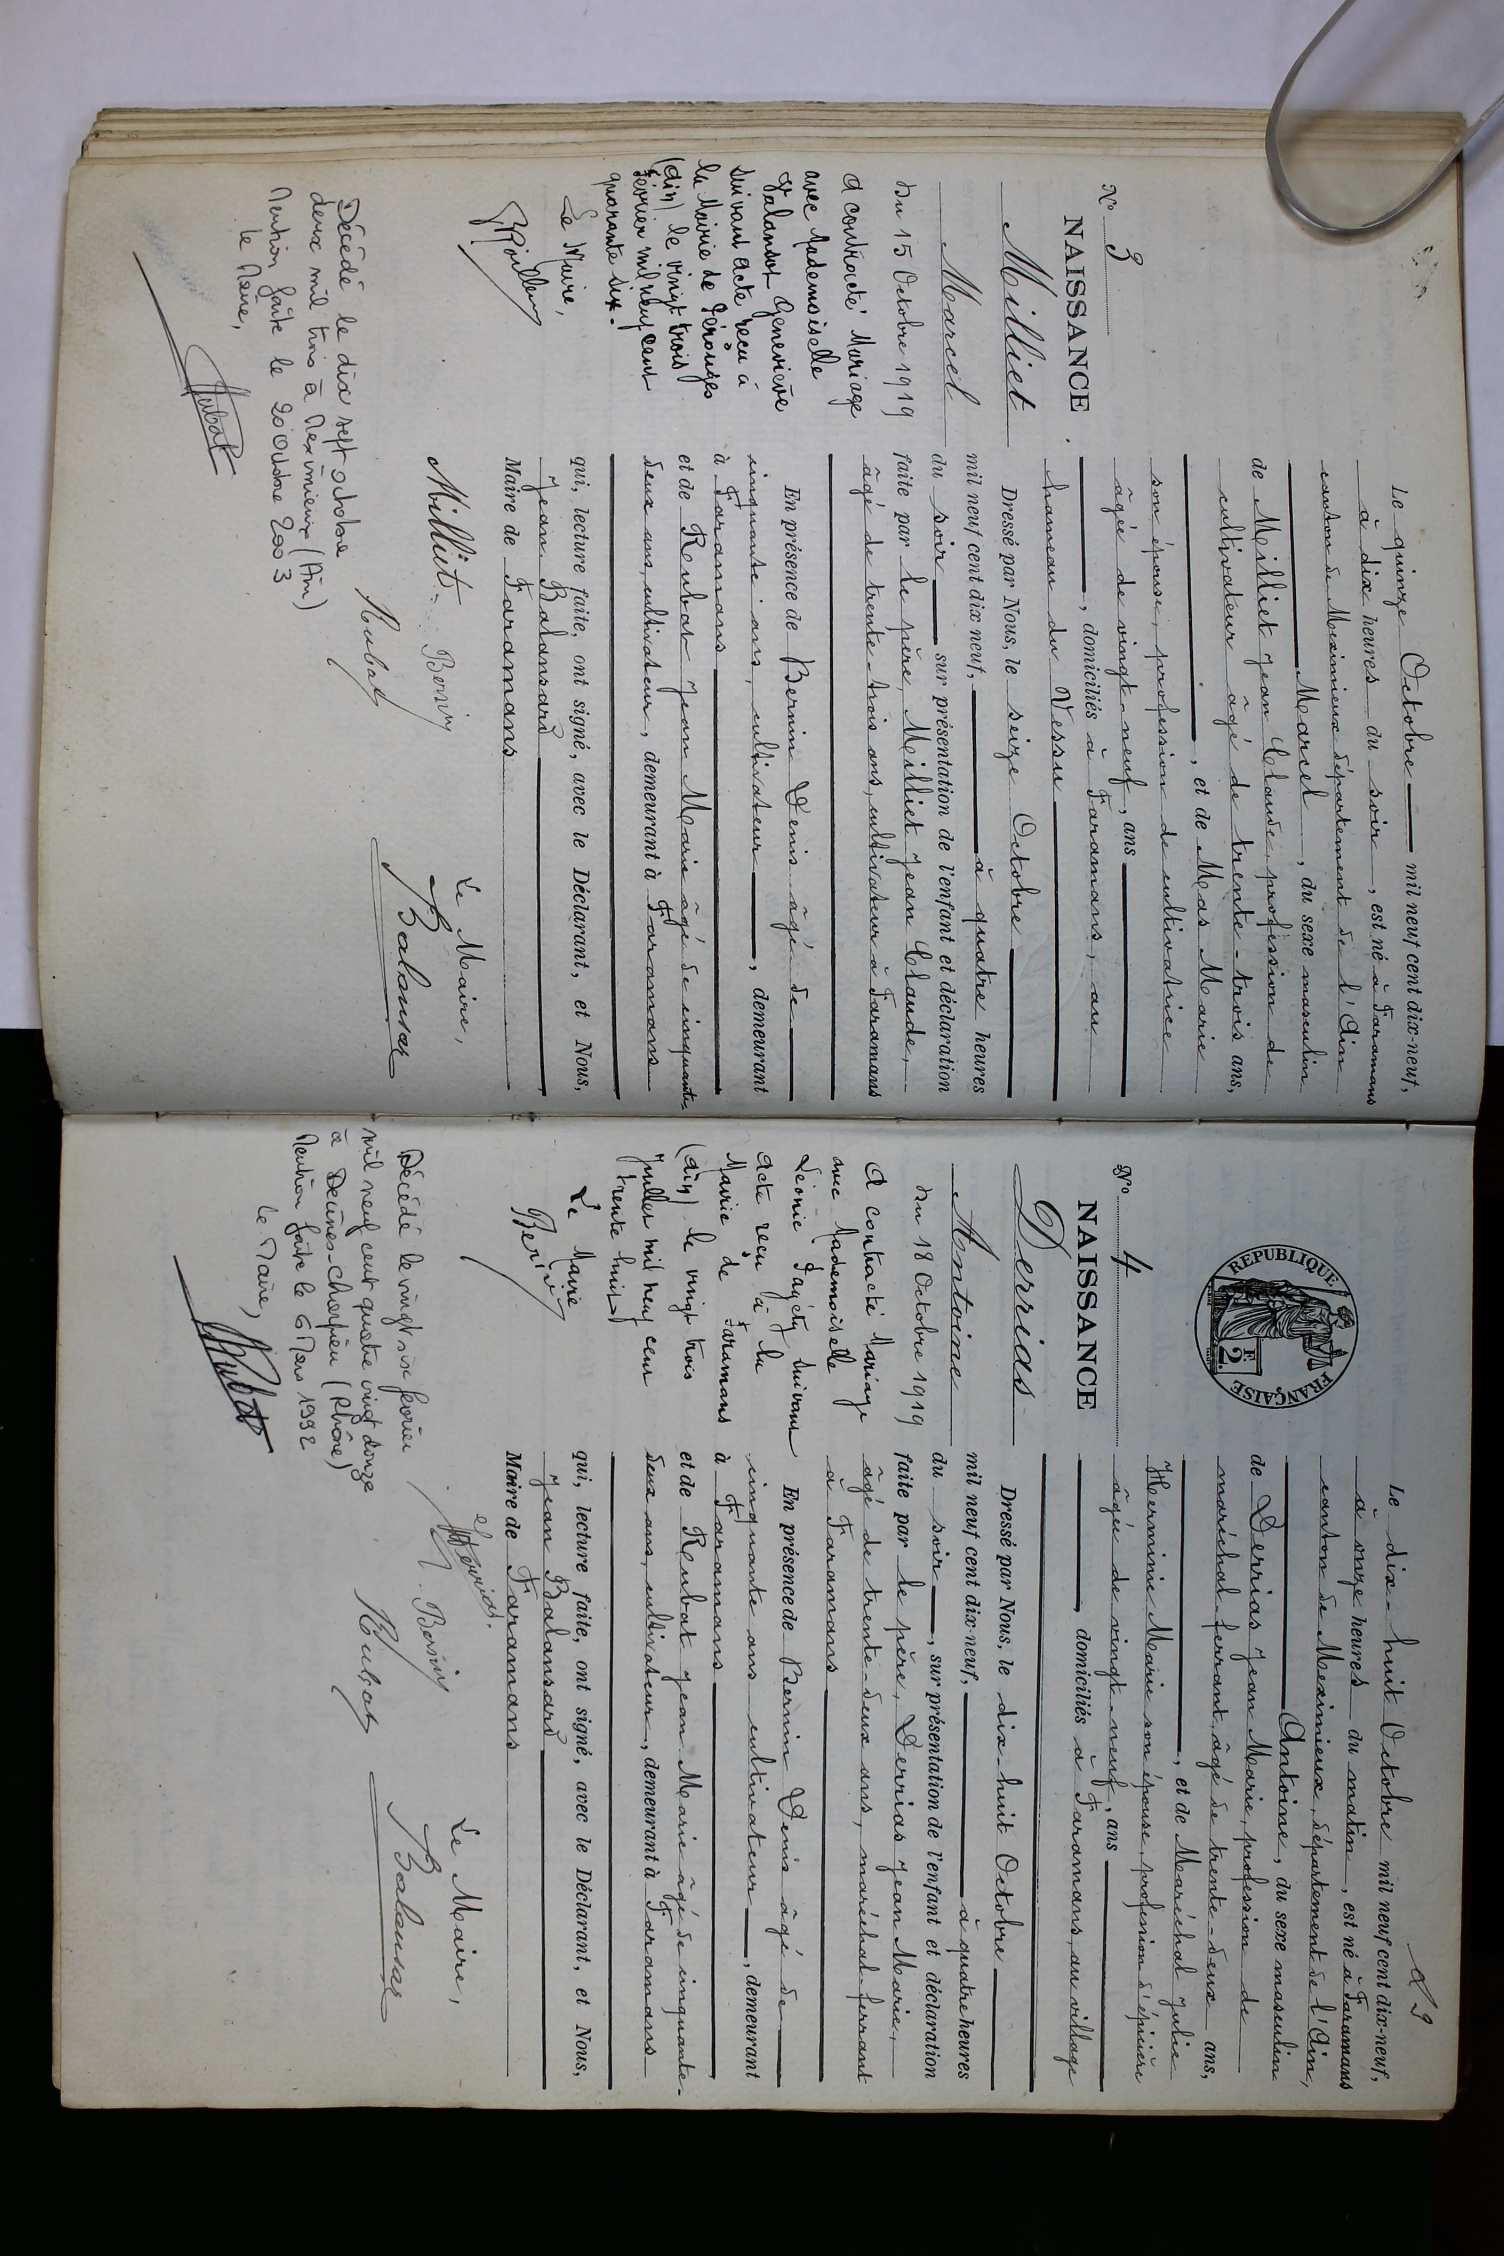 N° 3
NAISSANCE
Milliet
Marcel
Du 15 Octobre 1919
A contracté Mariage
avec Mademoiselle
Genevieve
suivant acte reçu à
la Mairie de Pérouges
(Ain) le vingt trois
février mil neuf cent
quarante six.
Le Maire,
Décédé le dix sept octobre
deux mil trois à Meximieux (Ain)
Mention faite le 20 Octobre 2003
le Maire,
Le quinze Octobre mil neuf cent dix-neuf,
à dix heures du soir, est né à Faramans
canton de Meximieux département de l'Ain
Marcel, du sexe masculin
de Milliet Jean Claude, profession de
cultivateur âgé de trente-trois ans,
, et de Mas Marie
son épouse, profession de cultivatrice
âgée de vingt-neuf, ans
, domiciliés à Faramans, au
hameau du Vessu
Dressé par Nous, le seize Octobre
mil neuf cent dix neuf, à quatre heures
du soir sur présentation de l'enfant et déclaration
faite par le père, Milliet Jean Claude,
âgé de trente-trois ans, cultivateur à Faramans
En présence de Bernin Denis âgé de
cinquante ans, cultivateur, demeurant
à Faramans
et de Rubat Jean Marie âgé de cinquante-
deux ans, cultivateur, demeurant à Faramans
qui, lecture faite, ont signé, avec le Déclarant, et Nous,
Jean Balansard
Maire de Faramans
Milliet Bernin
Rubat
Le Maire,
Balansard
A 9
REPUBLIQUE FRANÇAISE
2 F.
N° 4
NAISSANCE
Derrias
Antoine
Du 18 Octobre 1919
A contracté Mariage
avec Mademoiselle
Léonie suivant
acte reçu à la
Mairie de Faramans
(Ain) le vingt trois
Juillet mil neuf cent
trente huit
Le Maire
Décédé le vingt six février
mil neuf cent quatre vingt douze
à Décines-Charpieu (Rhône)
Mention faite le 6 Mars 1992
le Maire,
Le dix-huit Octobre mil neuf cent dix-neuf,
à onze heures du matin, est né à Faramans
canton de Meximieux, département de l'Ain,
Antoine, du sexe masculin
de Derrias Jean Marie, profession de
maréchal-ferrant, âgé de trente-deux ans,
, et de Maréchal Julie
Herminie Marie son épouse, profession d'épicière
âgée de vingt-neuf, ans
, domiciliés à Faramans, au village
Dressé par Nous, le dix-huit Octobre
mil neuf cent dix-neuf, à quatre heures
du soir, sur présentation de l'enfant et déclaration
faite par le père, Derrias Jean Marie,
âgé de trente-deux ans, maréchal ferrant
à Faramans
En présence de Bernin Denis âgé de
cinquante ans cultivateur, demeurant
à Faramans
et de Rubat Jean Marie âgé de cinquante-
deux ans, cultivateur, demeurant à Faramans
qui, lecture faite, ont signé, avec le Déclarant, et Nous,
Jean Balansard
Maire de Faramans
Derrias. Bernin
Rubat
Le Maire,
Balansard